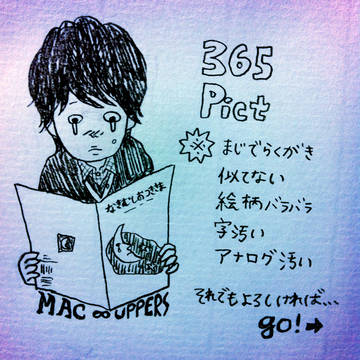 365
Pict
※ まじでらくがき
似てない
絵柄バラバラ
字汚い
アナログ汚い
それでもよろしければ…
go!→
なきむしおつきさま
MAC∞UPPERS